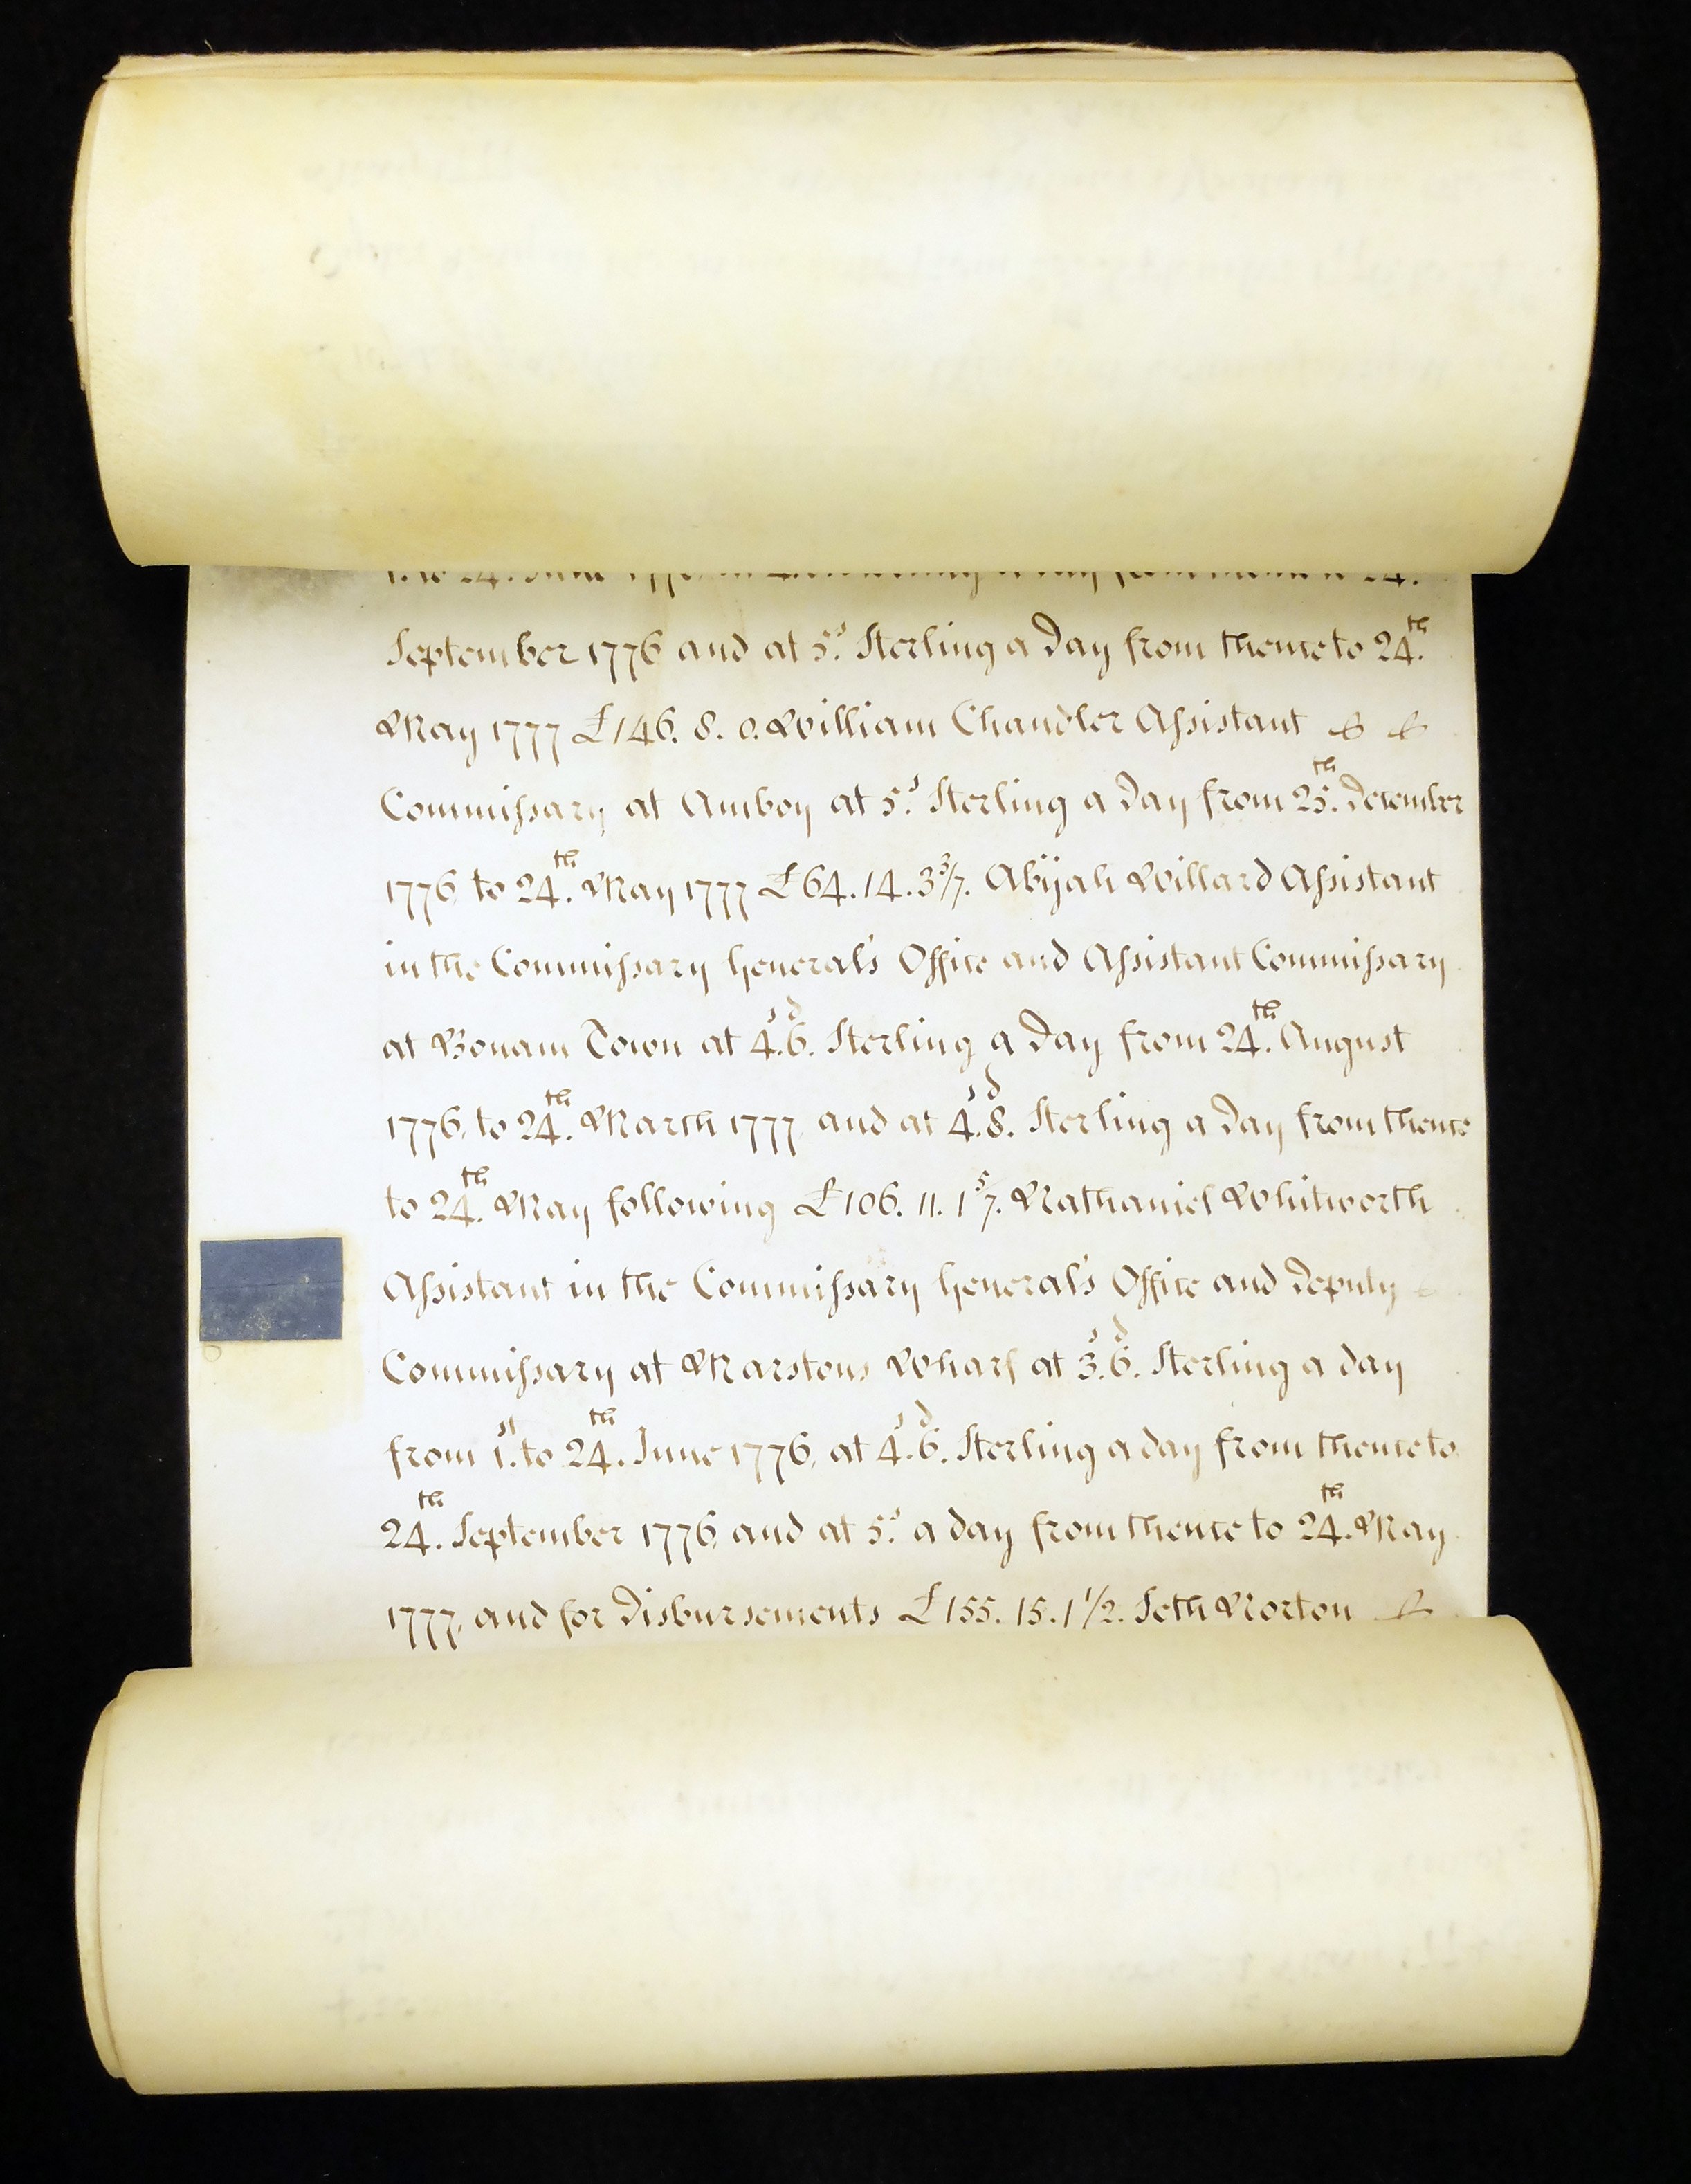 1. to 24. June 177
September 1776 and at 5.s Sterling a Day from thence to 24.th
May 1777 £146. 8. 0. William Chandler Assistant
Commissary at Amboy at 5.s Sterling a Day from 25.th December
1776 to 24.th May 1777 £64. 14. 3 3/7. Abijah Willard Assistant
in the Commissary General's Office and Assistant Commissary
at Bonam Town at 4.s 6.d Sterling a Day from 24.th August
1776, to 24.th March 1777, and at 4.s 8.d Sterling a Day from thence
to 24.th May following £106. 11. 1 5/7. Nathaniel Whitworth
Assistant in the Commissary General's Office and Deputy
Commissary at Marstons Wharf at 3.s 6.d Sterling a day
from 1.st to 24.th June 1776, at 4.s 6.d Sterling a day from thence to
24.th September 1776 and at 5.s a day from thence to 24.th May
1777, and for Disbursements £155. 15. 1 1/2. Seth Norton